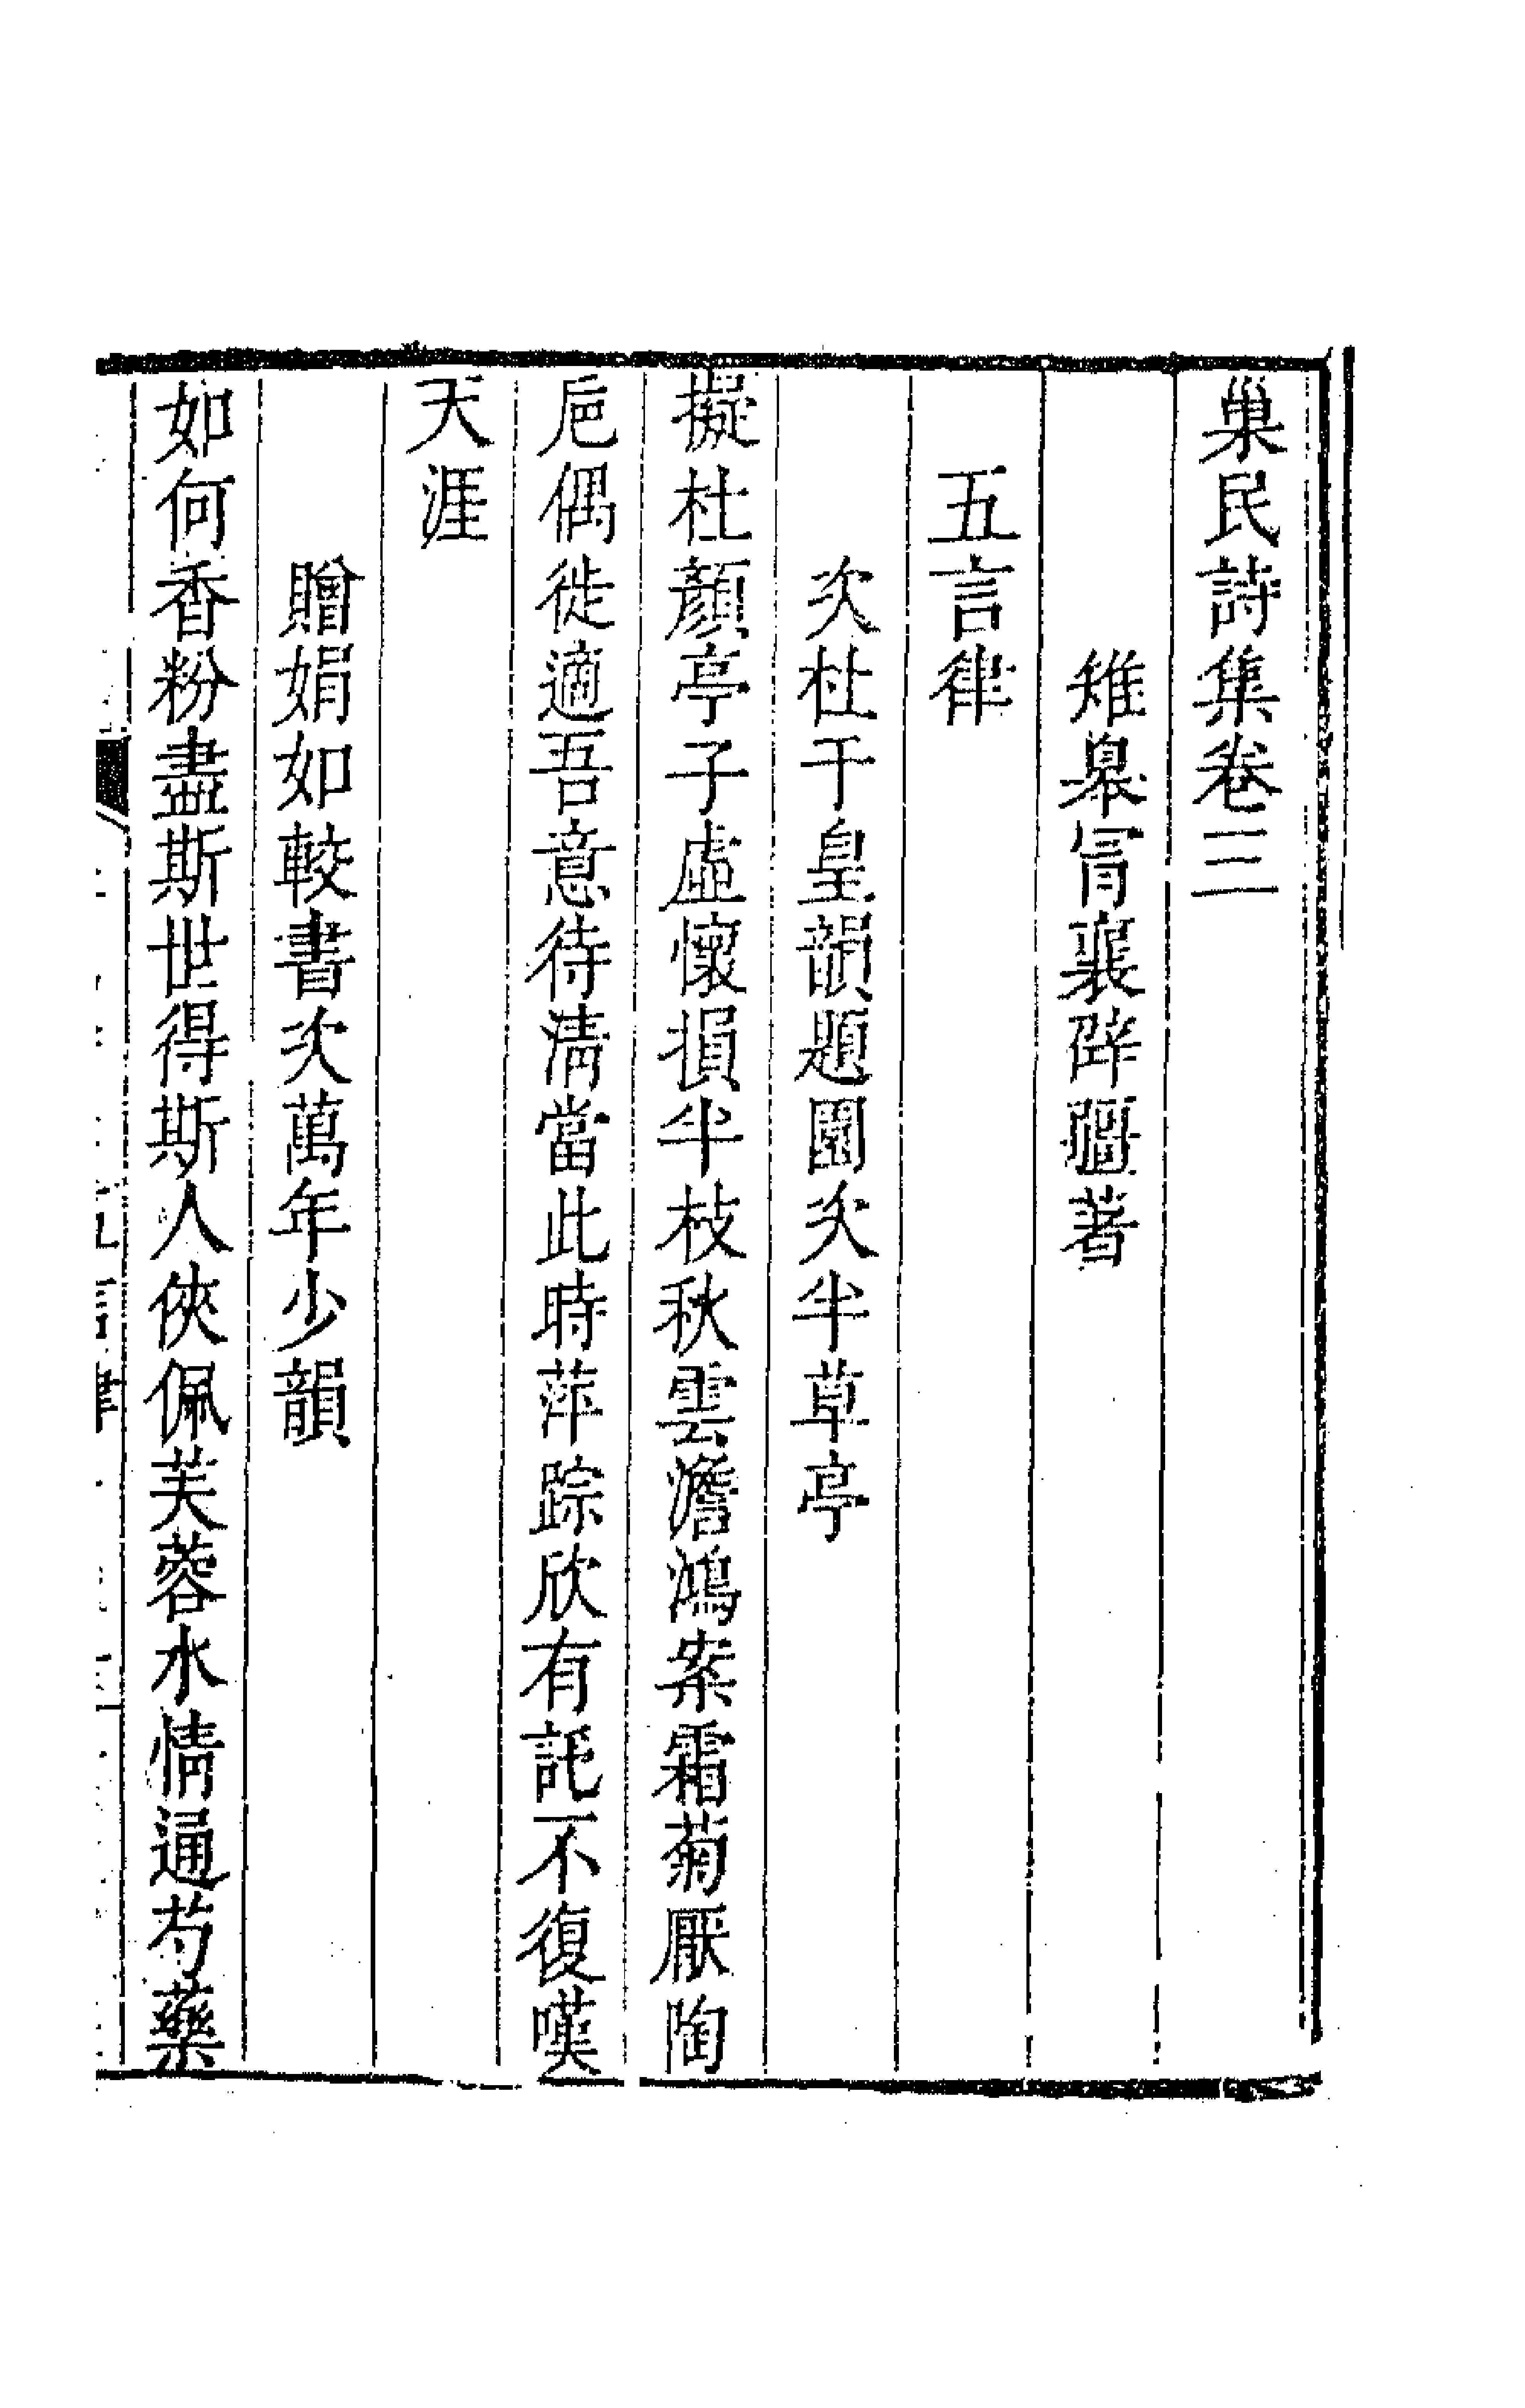 巢民詩集卷三
雉臯冐襄辟疆著
五言律
次杜于皇韻題園次半草亭
擬杜顏亭子虛懷損半枝秋雲澹鴻案霜菊厭陶
巵偶徙適吾意待淸當此時萍踪欣有託不復嘆
天涯
贈娟如較書次萬年少韻
如何香粉盡斯世得斯人俠佩芙蓉水情通芍藥